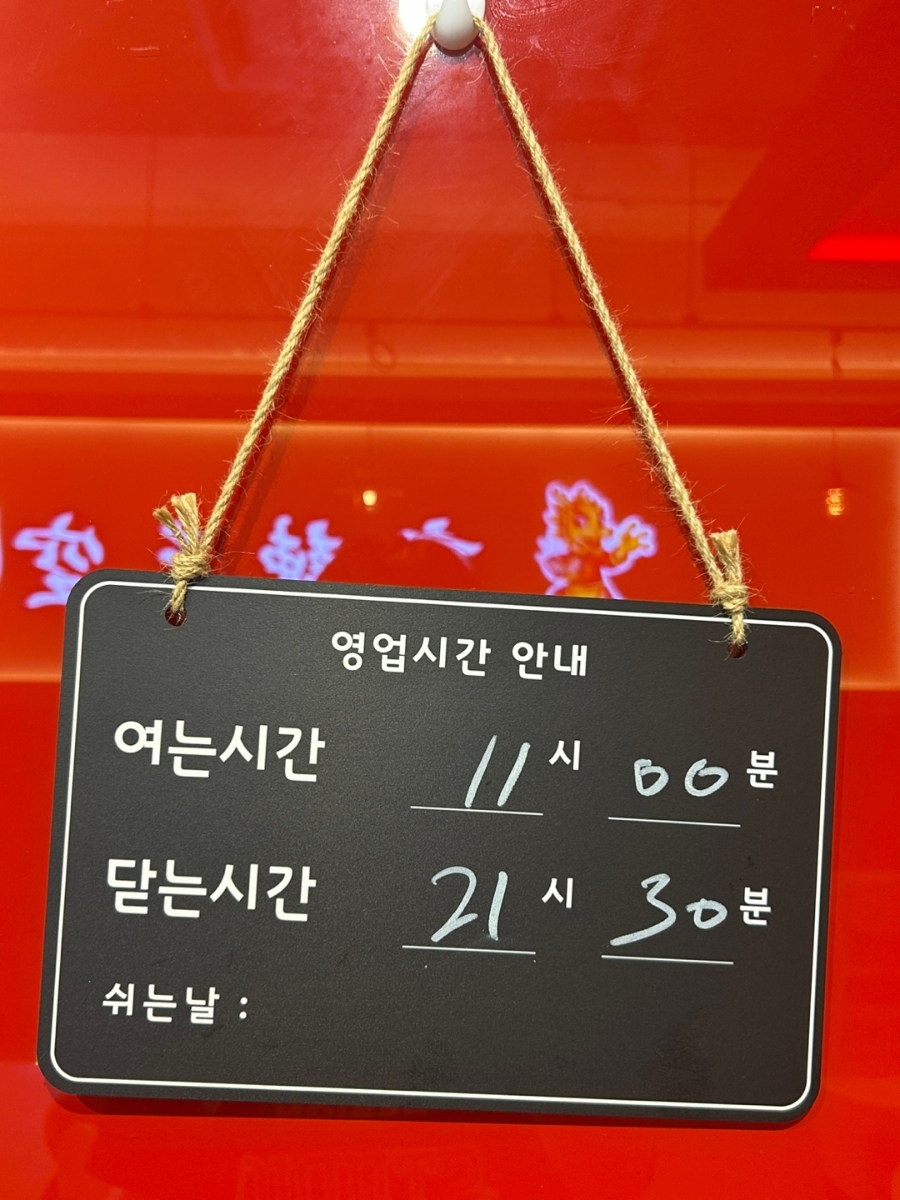 영업시간 안내
여는시간 11 시 00 분
닫는시간 21 시 30 분
쉬는날 :